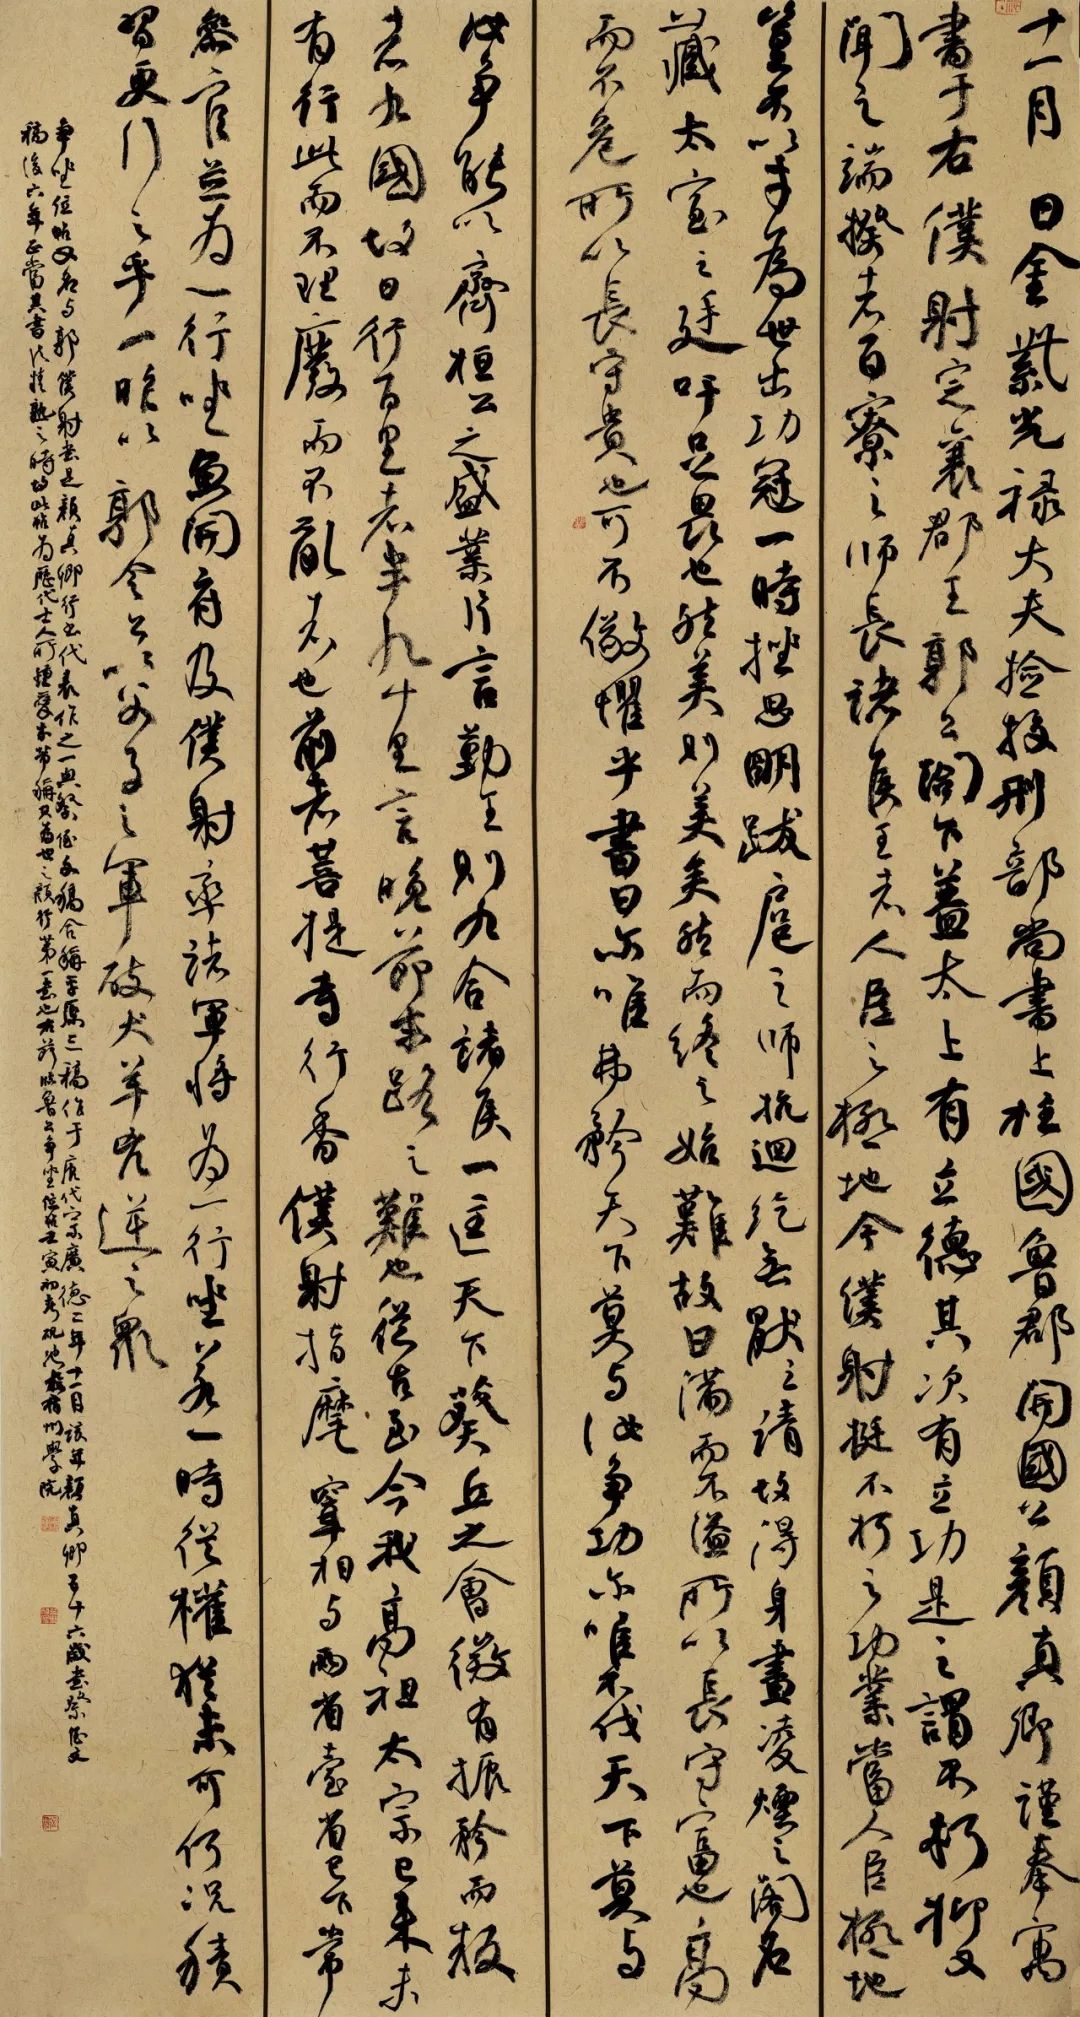 十一月 日金紫光禄大夫撿挍刑部尚書上柱國魯郡開國公顏真卿謹奉寓
書于右僕射定襄郡王郭公閤下蓋太上有立德其次有立功是之謂不朽抑又
聞之端揆者百寮之师長諸侯王者人臣之極地今僕射挺不朽之功業當人臣極地
豈不以才為世出功冠一時挫思明跋扈之师抗迴紇無猒之請故得身畫凌煙之閣名
藏太室之廷吁足畏也然美則美矣然而終之始難故曰滿而不溢所以長守富也高
而不危所以長守貴也可不儆懼乎書曰尔唯弗矜天下莫与汝争功尔唯不伐天下莫与
汝争能以齊桓公之盛業片言勤王則九合諸侯一匡天下葵丘之會微有振矜而叛
者九國故曰行百里者半九十里言晚節末路之難也從古至今我高祖太宗已来未
有行此而不理廢而不亂者也前者菩提寺行香僕射指麾宰相与兩省臺省已下常
叅官並为一行坐魚開府及僕射率諸軍将为一行坐若一時從權猶未可何況積
習更行之乎一昨以郭令公以父子之軍破犬羊兇逆之衆
争坐位帖又名与郭僕射书是顏真卿行书代表作之一與祭侄文稿合稱三稿作于唐代宗廣德二年十一月該年顏真卿五十六歲书祭侄文
稿後六年正當其書法精熟之時故此帖为歷代士人所鍾愛米芾稱为世之顏行第一书也魯公争坐位帖壬寅初春學院